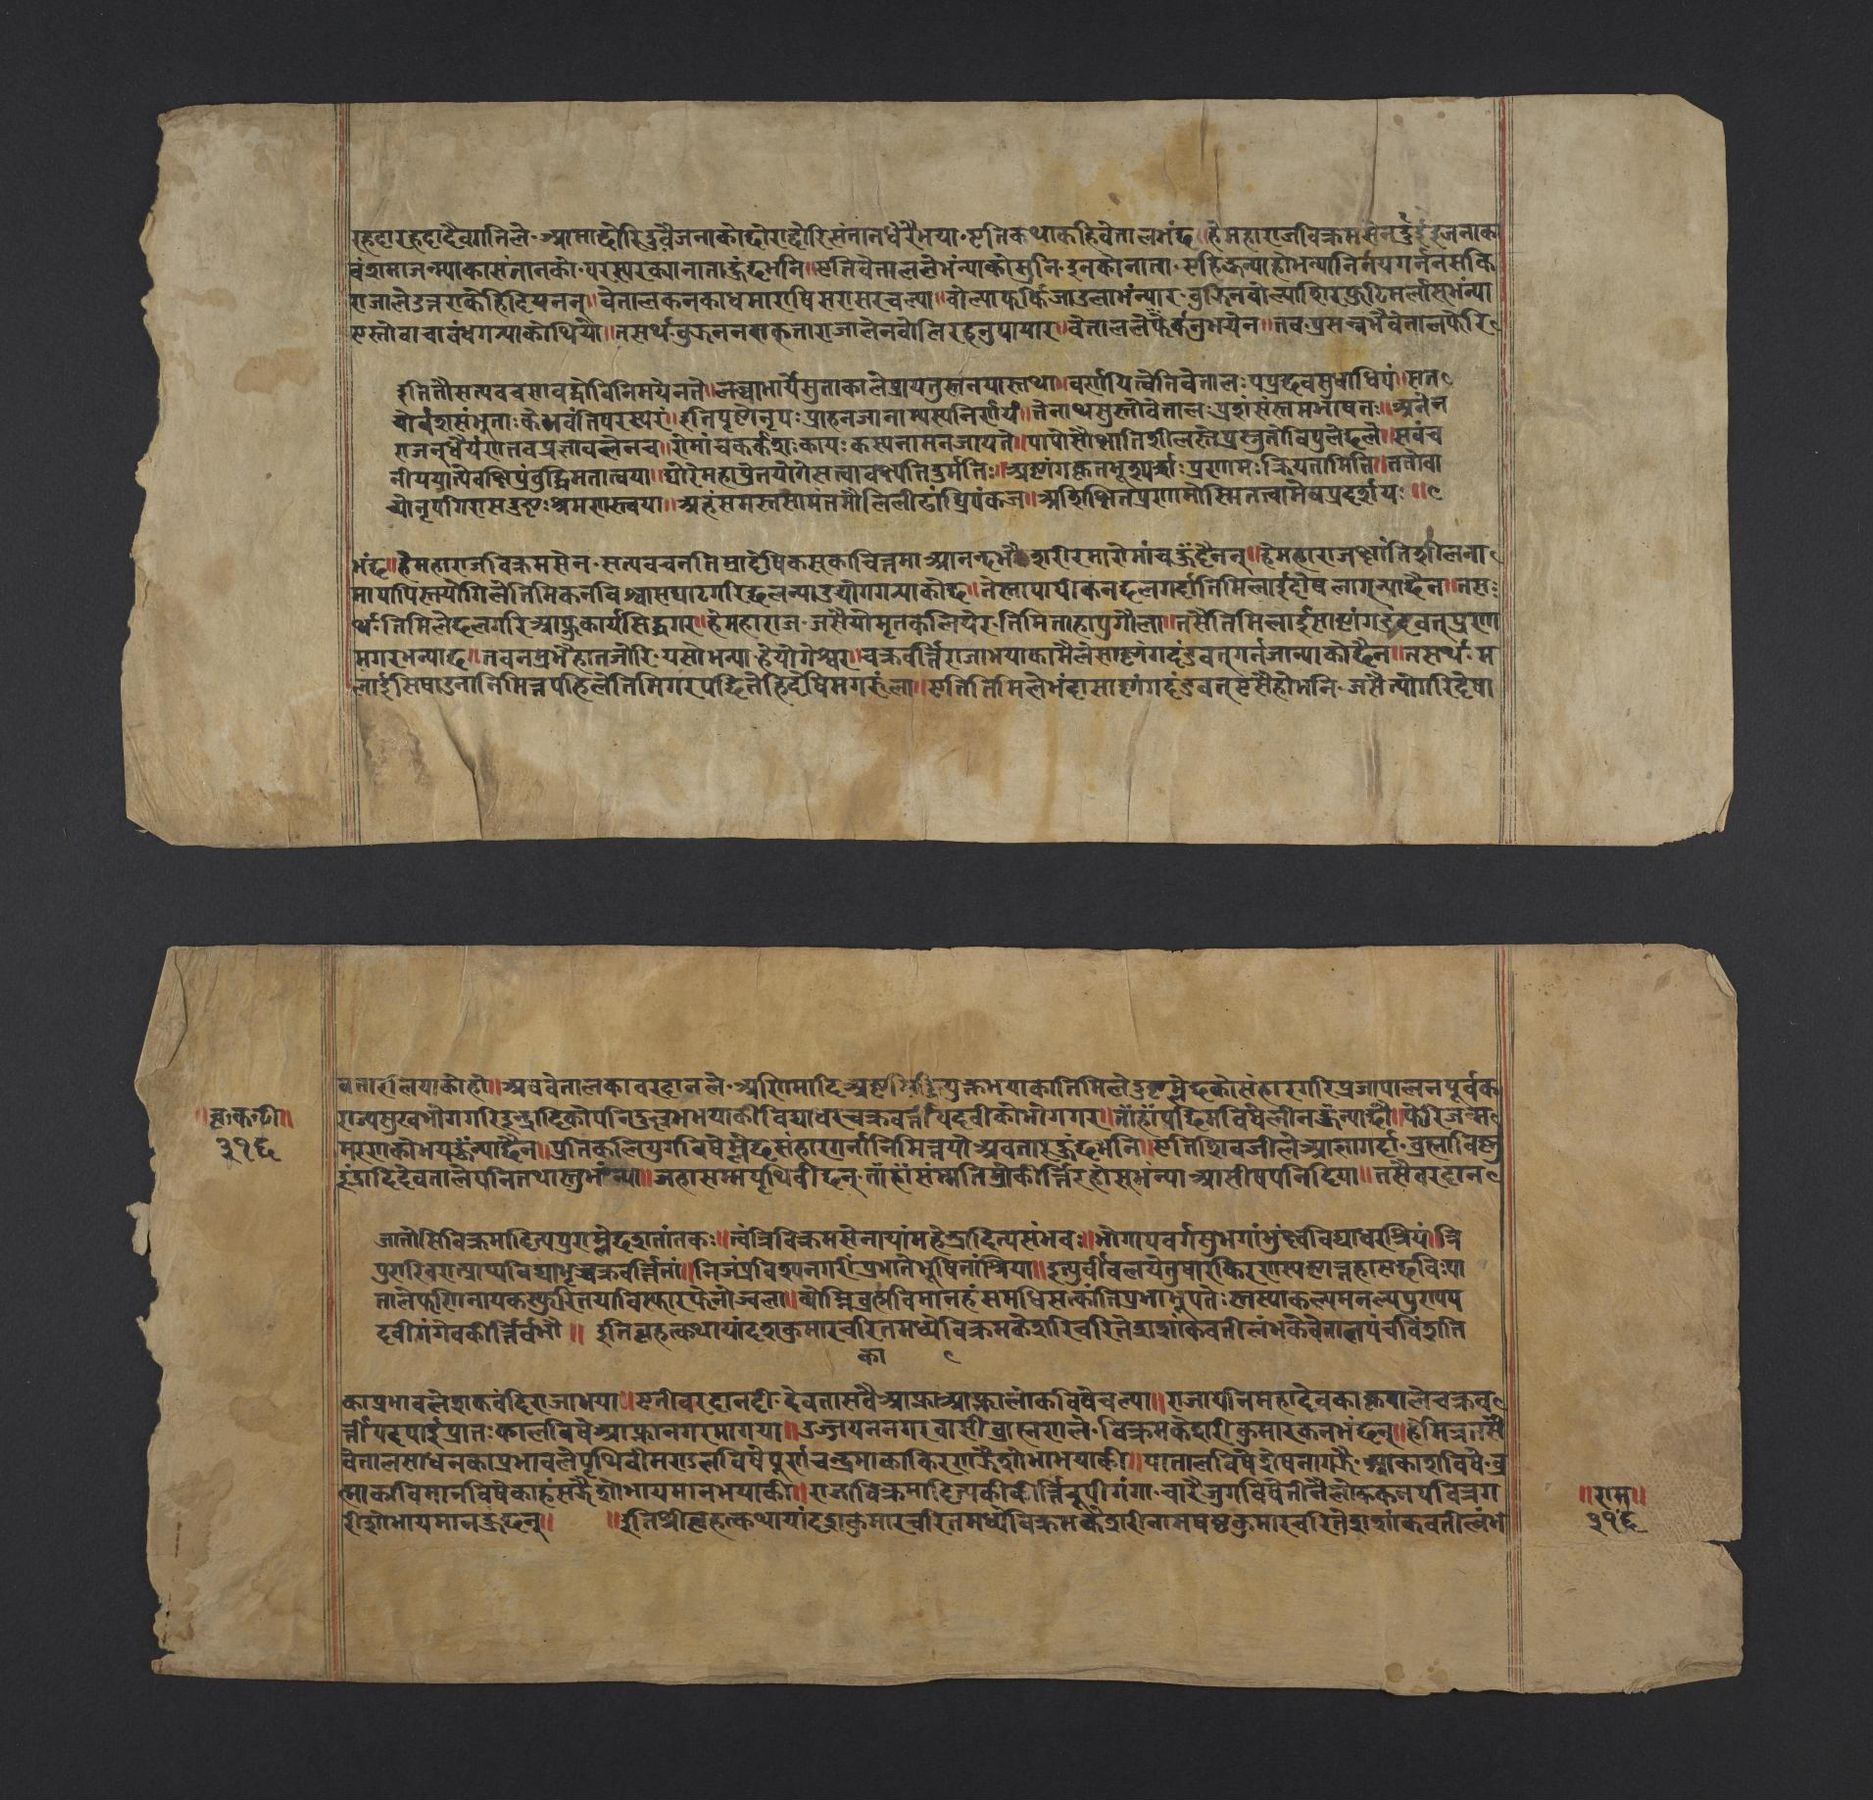 रहदारहदादैव्यानिले आमाछोरिदुवैजनाकोछोराछोरिसंतानधेरैभया एतिकथाकहिवेतालभंछ॥ हेमहाराजविक्रमसेन दुईजनाका
वंशमाजन्म्याकासंतानको परस्परक्यानाताहुंछभनि॥ एतिवेतालले भंन्याकोसुनि इनकोनाता सहिहुन्याहोभन्यानिर्नयगर्ननसकि
राजालेउत्तराकेहिदियनन्॥ वेतालकनकाधमाराषिसरासरचल्या॥ बोल्याफर्किजाउलाभंन्यार वुझिनवोल्याशिरफुटिमर्लासभंन्या
एस्तोवाचावंधगर्‍याकोथियो॥ तसर्थ वुझननसकताराजालेनवोलिरहनुपायार वेताललेफेर्कनुभयेन॥ तवप्रसन्नभैवेतालफेरि
इतितौसत्यवचसावद्धोविनिमयेनते॥ लब्ध्वाभार्येसुताकालेप्रायतुस्तनयास्तथा॥ वर्णायित्वेतिवेतालः पप्रछवसुधाधिपं॥ सत
योर्वंशसंभुताः केभवंतिपरस्परं॥ इतिपृष्टोनृपः प्राहनजानाम्यस्यनिर्णयं॥ तेनाथसुस्तोवेतालः प्रशंसंस्तमभाषत॥ अनेन
राजन्धैर्येणतवप्रज्ञावलेनच॥ रोमांचकर्कशः कायः कस्यनामनजायते॥ पापोसौक्षांतिशीलस्तेप्रस्तुतोविपुलेछले॥ सवंच
नीययात्येवक्षिप्रंवुद्धिमतात्वया॥ घोरेमहाप्रेतयोगेसत्वावक्ष्यतिदुर्मतिः॥ अष्टांगकृतभूस्पर्शः प्रणामः क्रियतामिति॥ ततोवा
च्योनृपगिरासदुष्टः श्रमणस्त्वया॥ अहंसमस्तसामंतमौलिलीढांघ्रिपंकज॥ अशिक्षितप्रणामोस्मितत्वामेवप्रदर्शय॥
भंछ॥ हेमहाराजविक्रमसेन सत्यवचनतिम्रादेषिकसकाचित्तमाआनन्दभै शरीरमारोमांचहुंदैनन्॥ हेमहाराजक्षांतिशीलना
मापापिस्तयोगिलेतिमिकनविश्वासघाटगरिछलन्याउयोगगर्‍याकोछ॥ तेस्तापापीकनछलगर्दातिमिलाईदोषलाग्न्याछैन॥ तस
र्थ तिमिलेछलगरिआफ्नुकार्यसिद्धगर॥ हेमहाराज जसैयोमृतकलियेर तिमितांहापुगौला॥ तसैतिमिलाईसाष्टांगदंडवत्प्रणा
मगरभन्याछ॥ तवनम्रभैहातजोरि यसोभन्या हेयोगेश्वर॥ चक्रवर्त्तिराजाभयाकामैलेसाष्टांगदंडवत्गर्नजान्याकोछैन॥ तसर्थ म
लाईसिषाउनानिमित्तपहिलेतिमिगरपछितेहिदेषिमगरुंला॥ एतितिमिलेभंदासाष्टांगदंडवत्एसैहोभनि जसैत्योगरिदेषा
वृ॰क॰टी॥
३१६
वतारलियाकोहौ॥ अववेतालकावरदानले अणिमादिअष्टसिद्धियुक्तभयाकातिमिले दुष्टम्लेछकोसंहारगरिप्रजापालनपूर्वक
राज्यसुखभोगगरिइन्द्रादिकोपनिदुर्ल्लभभयाकीविद्याधरचक्रवर्त्तीपदवीकोभोगगर॥ तांहांपछिमविषेलीनहुन्याछौ॥ फेरिजन्म
मरणकोभयहुंन्याछैन॥ प्रतिकलियुगविषेम्लेछसंहारगर्नानिमित्तयोअवतारहुंछभनि॥ एतिशिवजीलेआज्ञागर्दा व्रह्माविष्णु
इंद्रादिदेवतालेपनितथास्तुभंन्या॥ जहासम्मपृथिवीछन् तांहांसंम्मतिम्रोकीर्त्तिरहोस्भंन्याआसीषपनिदिया॥ तसैवरदान
जातोसिविक्रमादित्यपुराम्लेछशतांतकः॥ त्वंत्रिविक्रमसेनायांमहेंद्रादित्यसंभवः॥ भोगापवर्गसुभगांभुंक्ष्वविद्याधरश्रियं॥ त्रि
पुरारिवरात्प्राप्यविद्याभृच्चक्रवर्त्तितां॥ निजंप्रविश्यनगरींप्रभातेभूषितांश्रिया॥ इत्युर्वीवलयेतुषारकिरणस्पष्टाट्टहासछविः पा
तालेफणिनायकस्फुरितयाविस्फारफेनोज्वला॥ व्योम्निव्रह्मविमानहंसमधिसत्कांतिप्रभाभूपतेः स्तस्याकल्पमनल्पपुण्यप
दवीगंगेवकीर्त्तिर्वभौ॥ इतिवृहत्कथायांदशकुमारचरितमध्येविक्रमकेशरिचरितेशशांकवतीलंभकेवेतालपंचविंशति
का
काप्रभावलेशकवंदिराजाभया॥ एतीवरदानदी देवतासवैआफ्नाआफ्नालोकविषेचल्या॥ राजापनिमहादेवकाकृपालेचक्रव
र्त्तीपदपाईप्रातःकालविषेआफ्नानगरमागया॥ उज्जायनेनगरवासीव्राह्मणले विक्रमकेशरीकुमारकनभंछन्॥ हेमित्रतसै
वेतालसाधनकाप्रभावलेपृथिवीमण्डलविषेपूर्णचन्द्रमाकाकिरणझैशोभाभयाकी॥ पातालविषेशेषनागझै आकाशविषे व्र
ह्माकाविमानविषेकाहंसझैशोभायमानभयाकी॥ राजाविक्रमादित्यकीकीर्त्तिरूपीगंगा चारैजुगविषेतीनैलोककनपवित्रग
रीशोभायमानहुन्छन्॥ ॥ इतिश्रीवृहत्कथायांदशकुमारचरितमध्येविक्रमकेशरीनामषष्ठकुमारचरितेशशांकवतीलंभे
॥राम॥
३१६